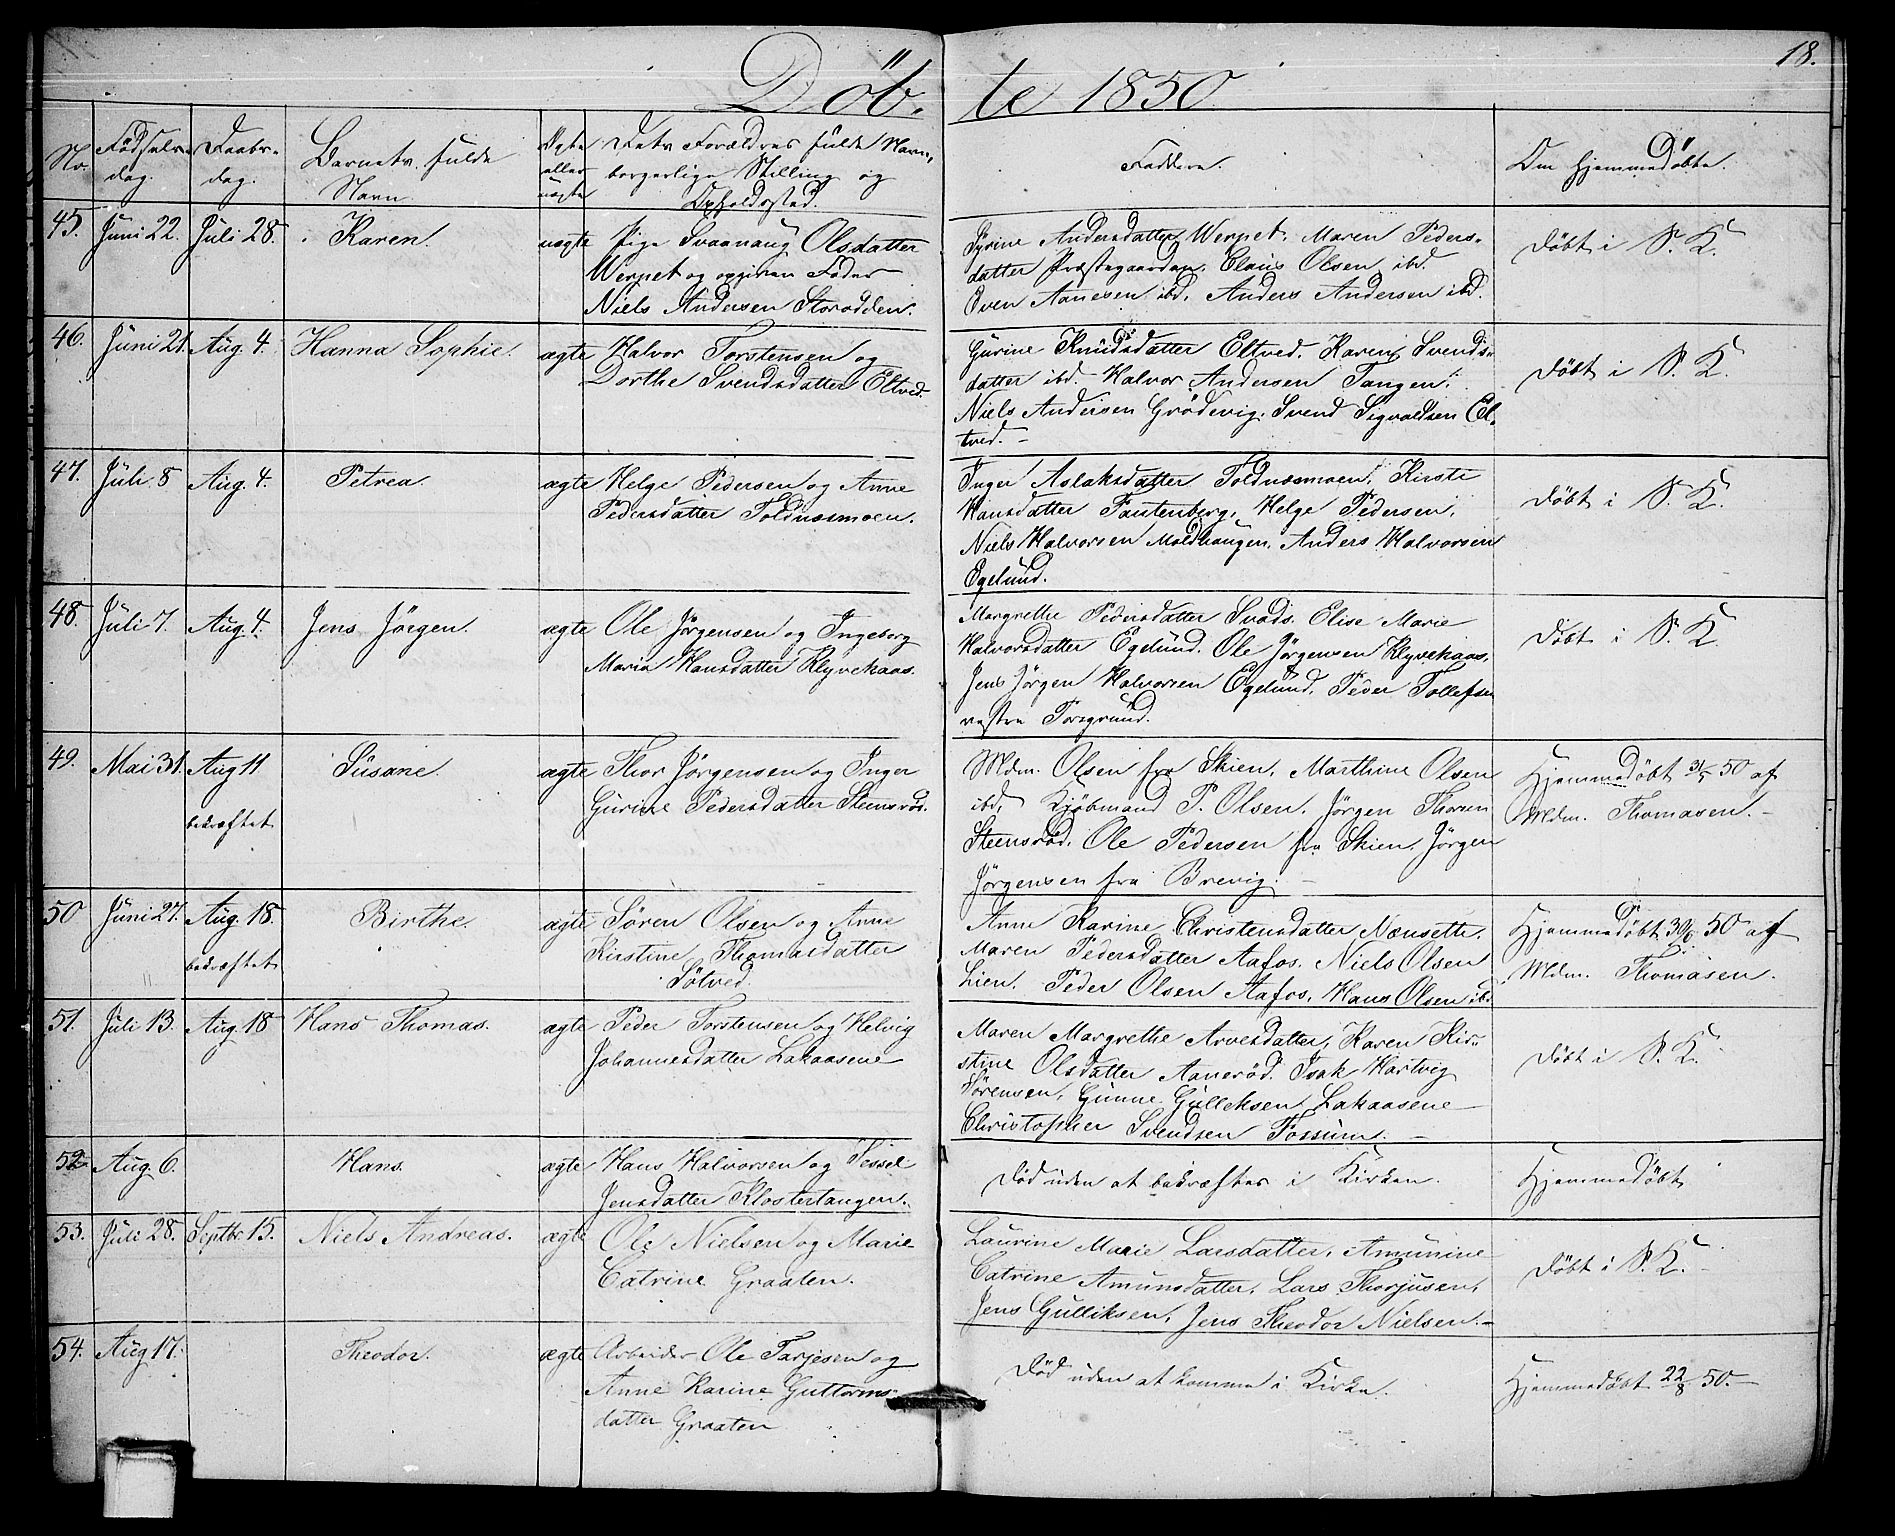 18.
Döb- te 1850
No. Fødsels- dag. Daabs- dag. Barnets fulde Navn Ægte eller uægte Dets Forældres fulde Navn, borgerlige Stilling og Opholdssted. Faddere. Om hjemmedøbte.
45. Juni 22. Juli 28. Karen. uægte Pige Svaanaug Olsdatter
Werpet og opgiven Fader
Niels Andersen Storodden.
Andersdatter Werpet. Maren Peders-
datter Præstegaarden. Claus Olsen ibd.
Even Aanesen ibd. Anders Andersen ibd.
Døbt i P. K.
46. Juni 21. Aug. 4. Hanna Sophie. ægte Halvor Torstensen og
Dorthe Svendsdatter Eltved.
Gurine Knudsdatter Eltved. Karen Svends-
datter ibd. Halvor Andersen Tangen.
Niels Andersen Grødevig. Svend Sigvaldsen El-
tved. -
Døbt i P. K.
47. Juli 8 Aug. 4. Petrea. ægte Helge Pedersen og Anne
Pedersdatter Toldnæsmoen.
Inger Aslaksdatter Toldnæsmoen. Kirsti
Hansdatter Fantenberg. Helge Pedersen.
Niels Halvorsen Moldhaugen. Anders Halvorsen
Egelund.
Døbt i P. K.
48. Juli 7. Aug. 4. Jens Jörgen. ægte Ole Jörgensen og Ingeborg
Maria Hansdatter Klyvekaas.
Margrethe Pedersdatter Svads. Elise Marie
Halvorsdatter Egelund. Ole Jörgensen Klyvekaas.
Jens Jörgen Halvorsen Egelund. Peder Tollefsen
vestre Porsgrund.
Døbt i P. K.
49. Mai 31. Aug 11 bekræftet Susane. ægte Thor Jörgensen og Inger
Gurine Pedersdatter Steensrød.
Mdm. Olsen fra Skien. Marthine Olsen
ibd. Kjöbmand P. Olsen. Jörgen Thorsen
Steensrød. Ole Pedersen fra Skien. Jörgen
Jörgensen fra Brevig. -
Hjemmedøbt 31/5 50 af
Mdm. Thomasen. -
50 Juni 27. Aug. 18. bekræftet Birthe. ægte Sören Olsen og Anne
Kirstine Thomasdatter
Sölved.
Anne Karine Christensdatter Nænseth.
Maren Pedersdatter Aafos. Niels Olsen
Lien. Peder Olsen Aafos. Hans Olsen ibd.
Hjemmedøbt 30/6 50 af
Mdm. Thomasen.
51. Juli 13. Aug. 18 Hans Thomas. ægte Peder Torstensen og Helvig
Johannesdatter Lakaasene
Maren Margrethe Arvesdatter, Karen Kir-
stine Olsdatter Aanerød. Isak Hartvig
Sörensen, Gunne Gulleksen Lakaasene
Christopher Svendsen Fossum. -
Døbt i P. K.
52 Aug. 6. Hans. ægte Hans Halvorsen og Sissel
Jensdatter Klostertangen.
Død uden at bekræftes i Kirken.
Hjemmedøbt
53. Juli 28. Septbr. 15. Niels Andreas. ægte Ole Nielsen og Marie
Catrine Graaten.
Laurine Marie Larsdatter, Amunine
Catrine Amundsdatter. Lars Thorjusen,
Jens Gulliksen, Jens Theodor Nielsen. -
Døbt i P. K. -
54. Aug 17. Theodor. ægte Arbeider Ole Tarjesen og
Anne Karine Guttorms-
datter Graaten
Død uden at komme i Kirke.
Hjemmedøbt 22/8 50. -